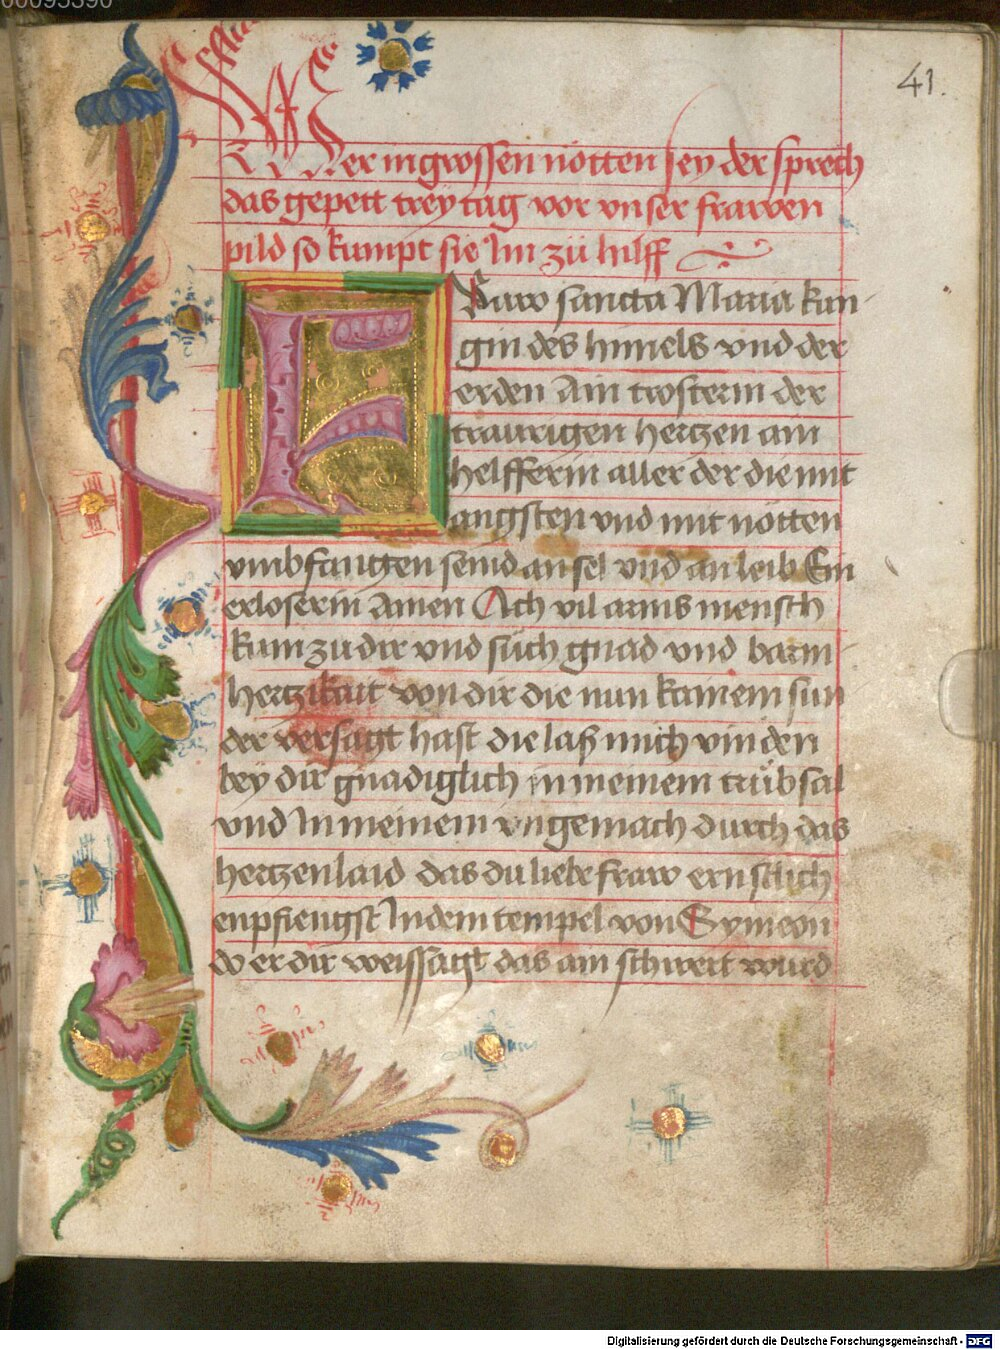 00095390
41.
Wer in grossen nötten sey der sprech
das gepett trey tag vor vnser frawen
pild so kumpt sie Im zü hilff
Fraw sancta Maria kun
gin des himels vnd der
erden Ain trosterin der
traurigen hertzen ain
helfferin aller der die mit
angsten vnd mit nötten
vmbfangen seind an sel vnd an leib Ein
erloserin Amen Ach vil arms mensch
kum zu dir vnd süch gnad vnd barm
hertzikait von dir die nun kainem sun
der versagt hast die laß mich vinden
bey dir gnadiglich in meinem trübsal
vnd In meinem vngemach durch das
hertzenlaid das du liebe fraw ernstlich
enpfiengst In dem tempel von Symeon
do er dir weissagt das ain schwert wurd
Digitalisierung gefördert durch die Deutsche Forschungsgemeinschaft - DFG